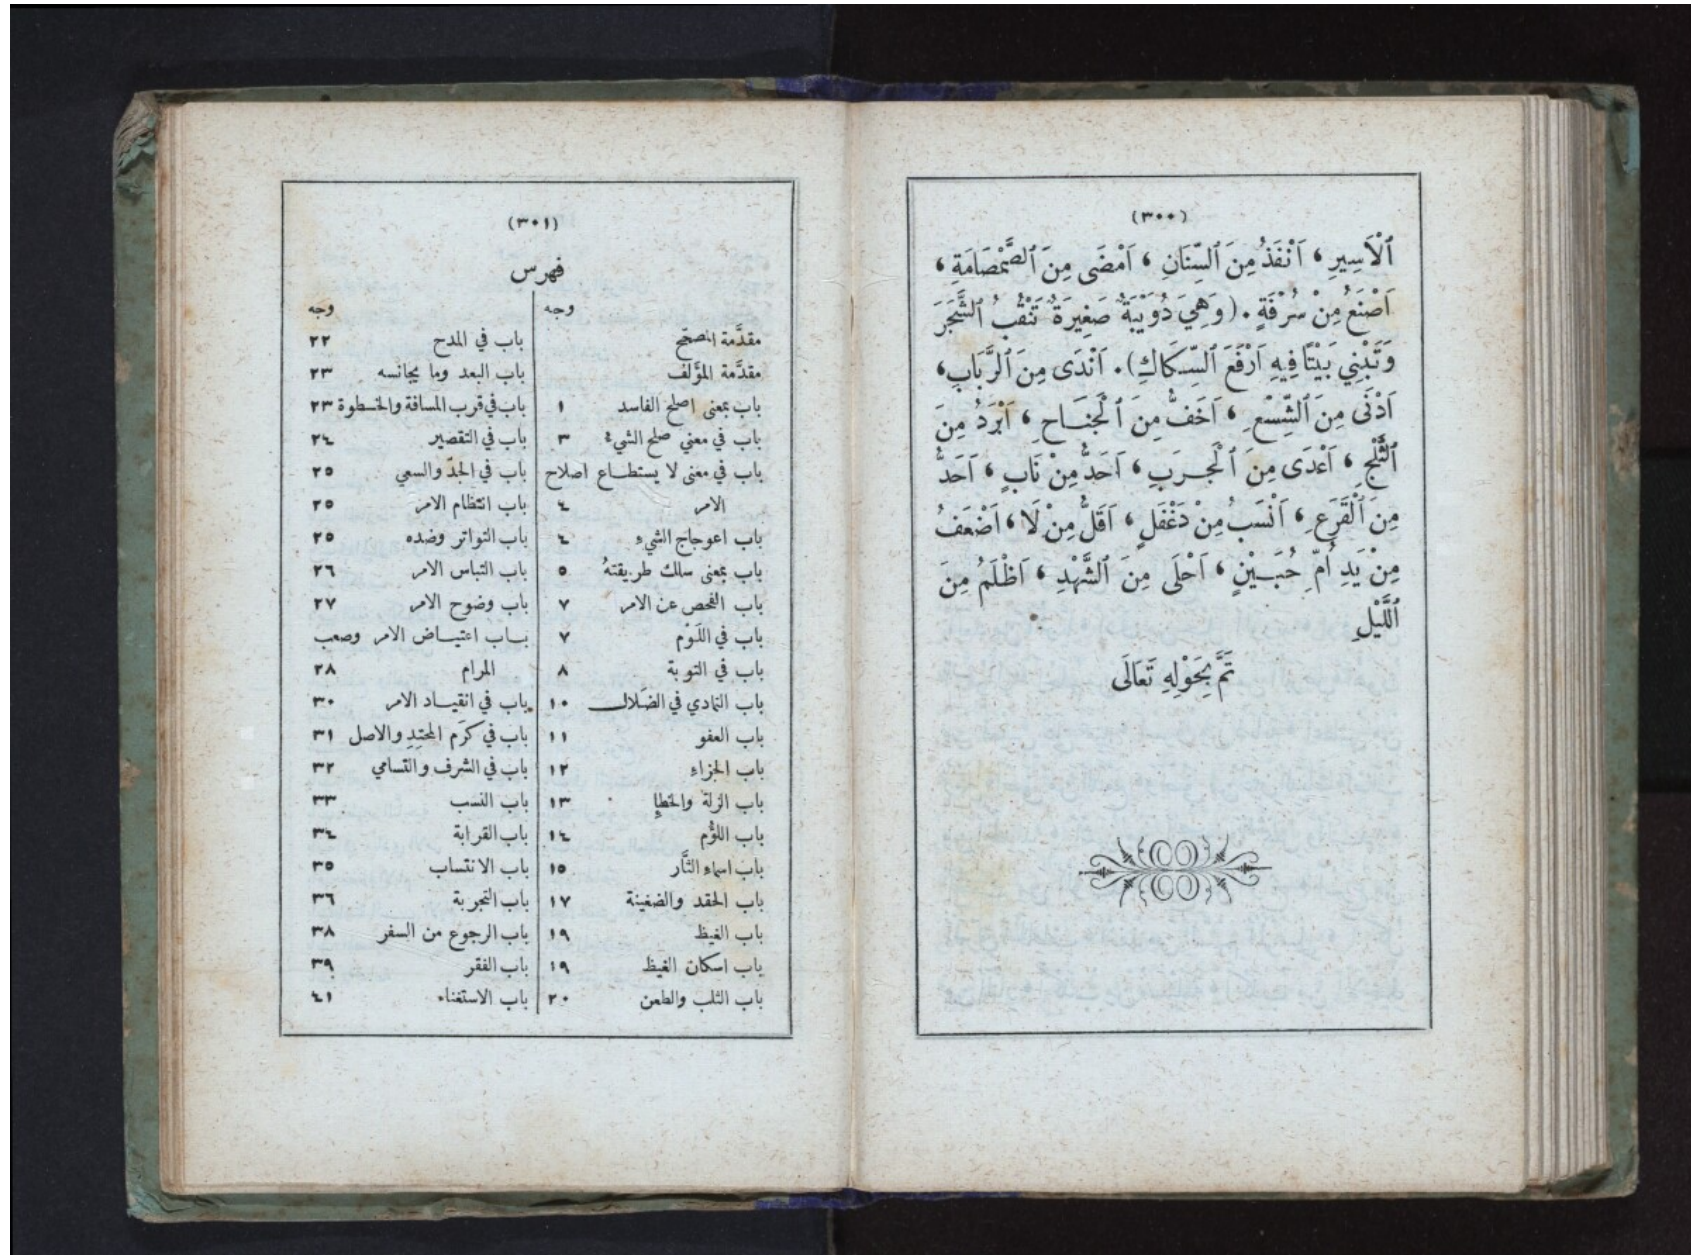 (٣٠٠)
ٱلْأَسِيرِ ، اَنْفَذُ مِنَ ٱلسِّنَانِ ، اَمْضَى مِنَ ٱلصَّمْصَامَةِ ،
اَصْنَعُ مِنْ سُرْفَةٍ . (وَهِيَ دُوَيْبَةٌ صَغِيرَةٌ تَنْقُبُ ٱلشَّجَرَ
وَتَبْنِي بَيْتًا فِيهِ اَرْفَعَ ٱلسِّكَاكِ) . اَنْدَى مِنَ ٱلرَّبَابِ ،
اَدْنَى مِنَ ٱلشِّسْعِ ، اَخَفُّ مِنَ ٱلْجَنَاحِ ، اَبْرَدُ مِنَ
ٱلثَّلْجِ ، اَعْدَى مِنَ ٱلْجَرَبِ ، اَحَدُّ مِنْ نَابٍ ، اَحَدُّ
مِنَ ٱلْقَرَعِ ، اَنْسَبُ مِنْ دَغْفَلٍ ، اَقَلُّ مِنْ لَا ، اَضْعَفُ
مِنْ يَدِ اُمِّ حُبَيْنٍ ، اَحْلَى مِنَ ٱلشَّهْدِ ، اَظْلَمُ مِنَ
ٱللَّيْلِ
تَمَّ بِحَوْلِهِ تَعَالَى
(٣٠١)
فهرس
وجه
مقدَّمة المصحّح
مقدَّمة المؤَلف
باب بمعنى اصلح الفاسد ١
باب في معنى صلح الشيء ٣
باب في معنى لا يستطاع اصلاح
الامر ٤
باب اعوجاج الشيء ٤
باب بمعنى سلك طريقتهُ ٥
باب الفحص عن الامر ٧
باب في اللَوْم ٧
باب في التوبة ٨
باب التمادي في الضَلال ١٠
باب العفو ١١
باب الجزاء ١٢
باب الزلة والخطإِ ١٣
باب اللؤْم ١٤
باب اسماء الثَّار ١٥
باب الحقد والضغينة ١٧
باب الغيظ ١٩
باب اسكان الغيظ ١٩
باب الثلب والطعن ٢٠
وجه
باب في المدح ٢٢
باب البعد وما يجانسه ٢٣
باب في قرب المسافة والخطوة ٢٣
باب في التقصير ٢٤
باب في الجدّ والسعي ٢٥
باب انتظام الامر ٢٥
باب التواتر وضده ٢٥
باب التباس الامر ٢٦
باب وضوح الامر ٢٧
باب اعتياض الامر وصعب
المرام ٢٨
باب في انقياد الامر ٣٠
باب في كرَم المحتِدِ والاصل ٣١
باب في الشرف والتسامي ٣٢
باب النسب ٣٣
باب القرابة ٣٤
باب الانتساب ٣٥
باب التجربة ٣٦
باب الرجوع من السفر ٣٨
باب الفقر ٣٩
باب الاستغناء ٤١